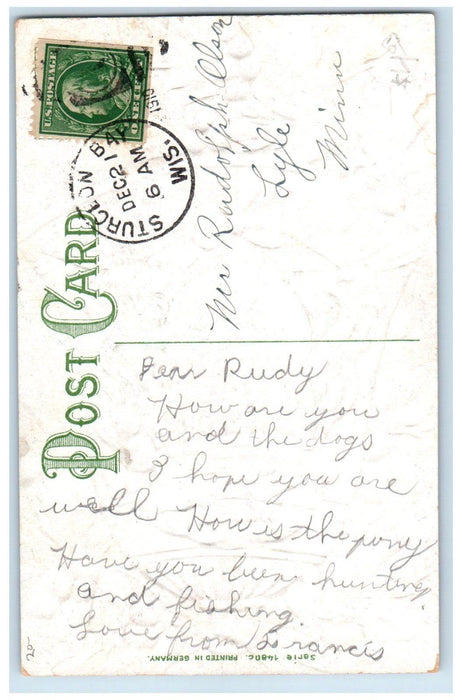 U.S. POSTAGE
ONE CENT
STURGEON BAY
DEC 21
6 AM
WIS.
POST CARD
Rudolph Olson
Lyle
Minn
Dear Rudy
How are you
and the dogs
I hope you are
well How is the pony
Have you been hunting
and fishing.
Love from Francis
Serie 1480c. PRINTED IN GERMANY.
20-